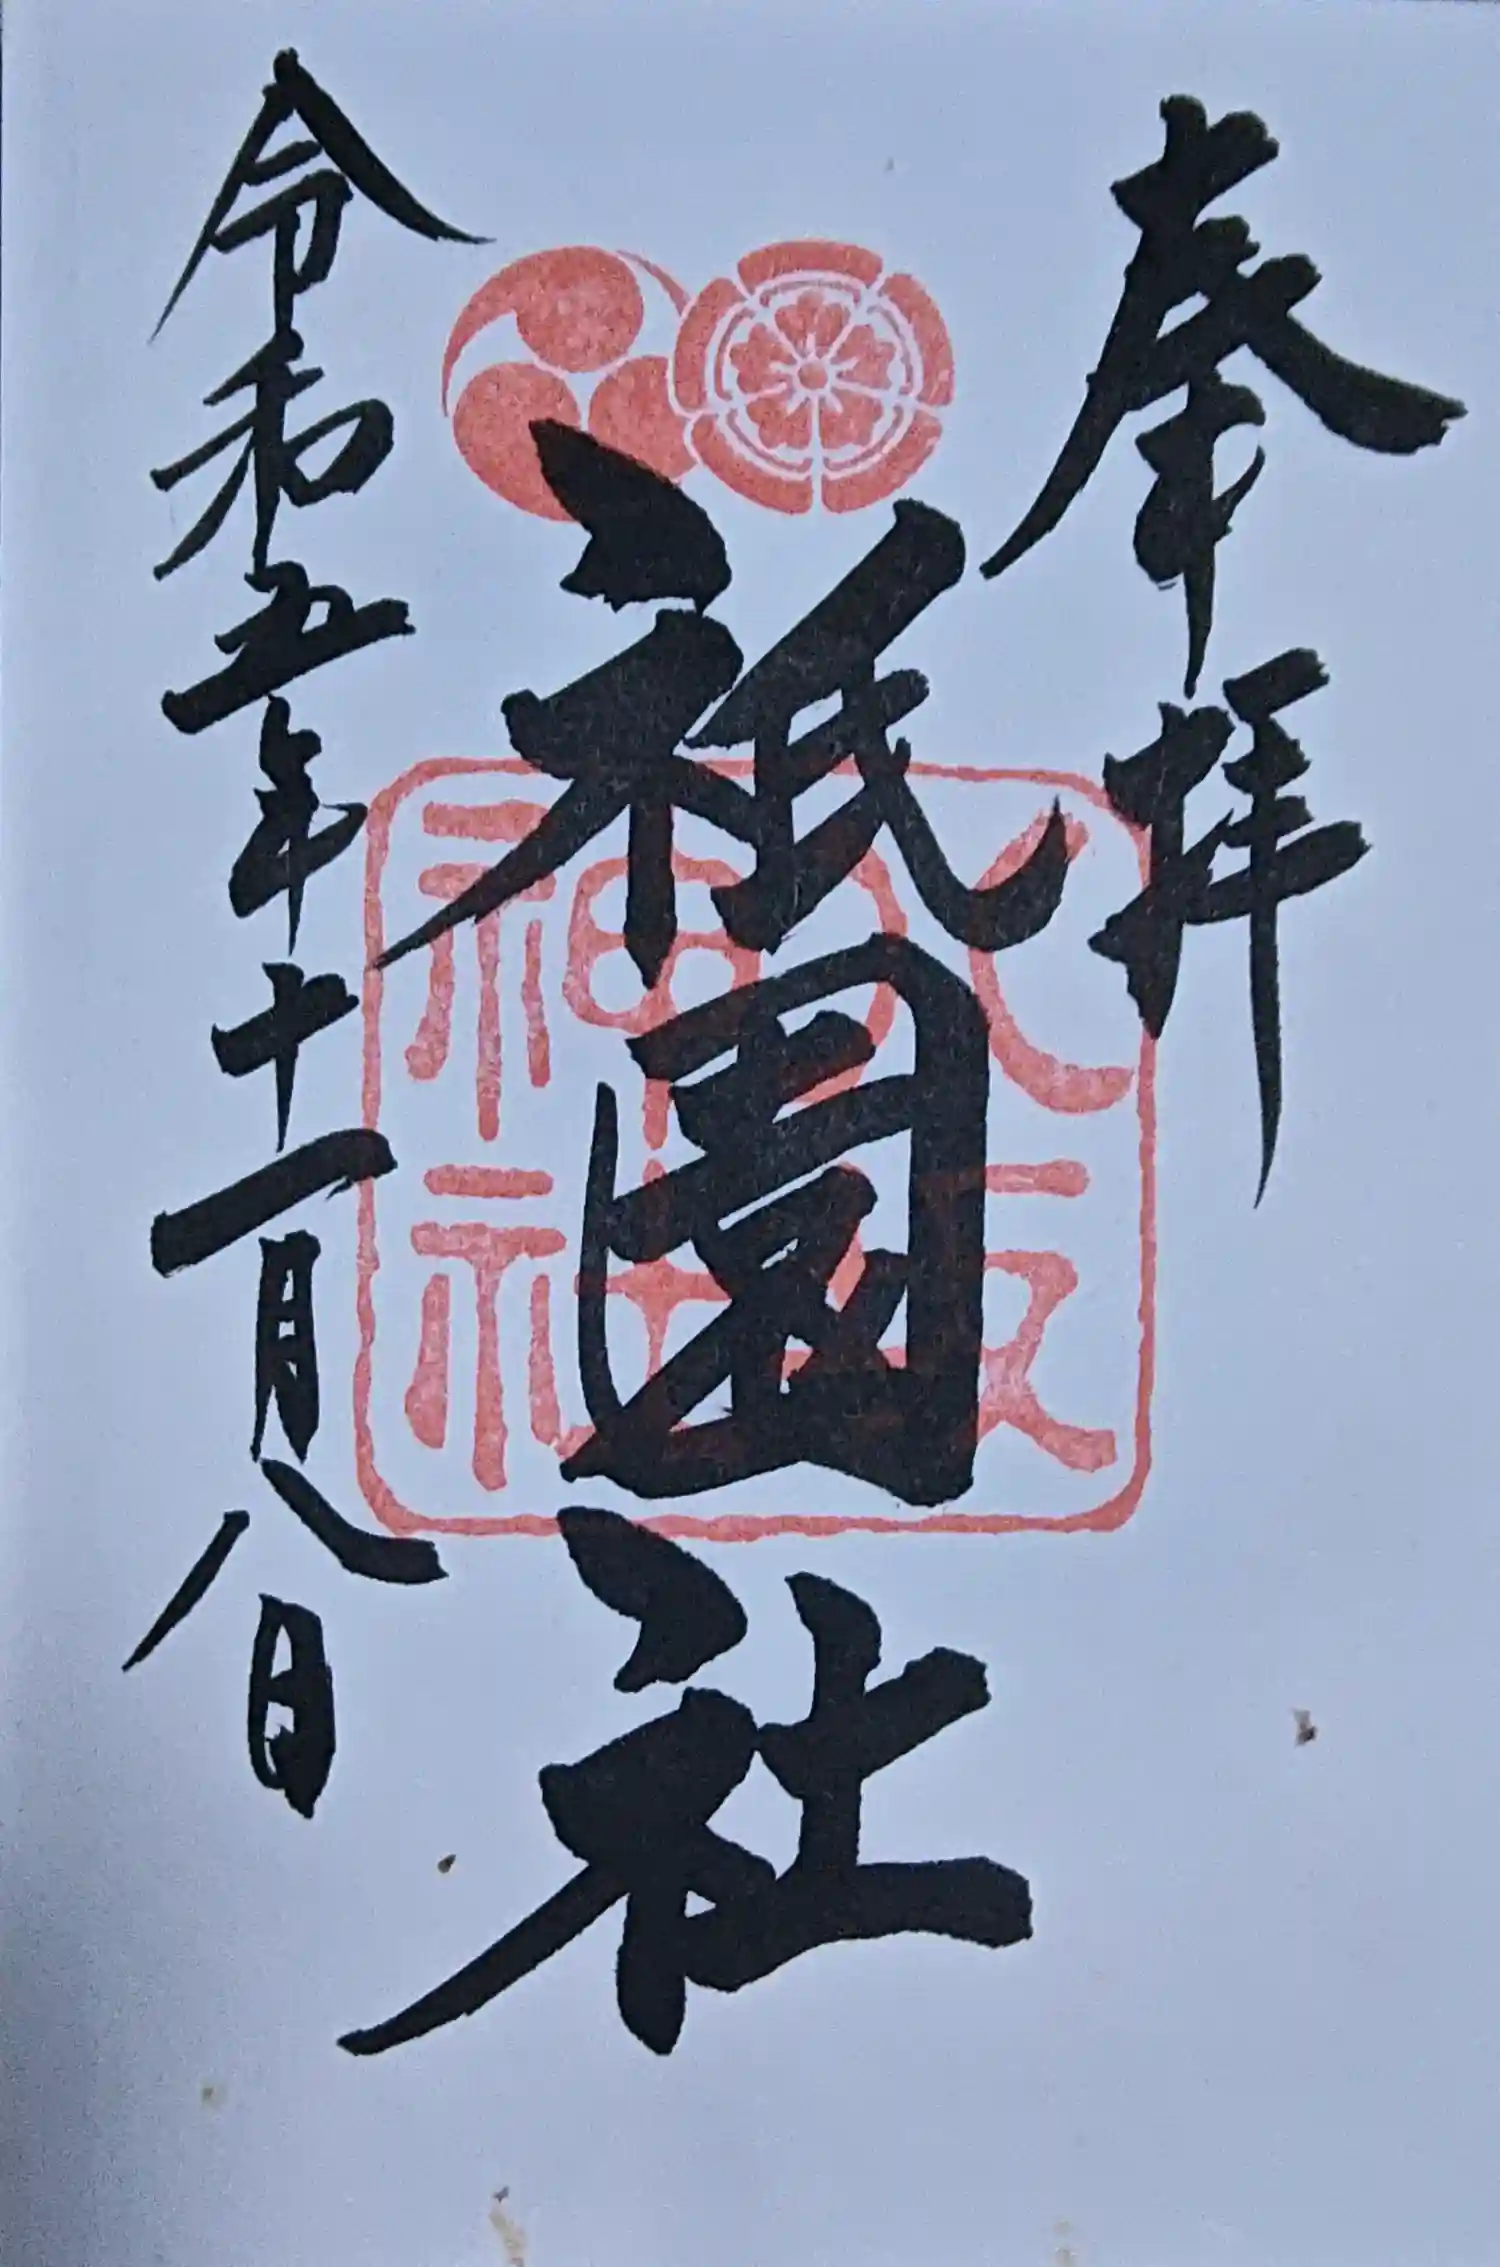 奉拝
八坂神社
祇園社
令和五年十一月八日